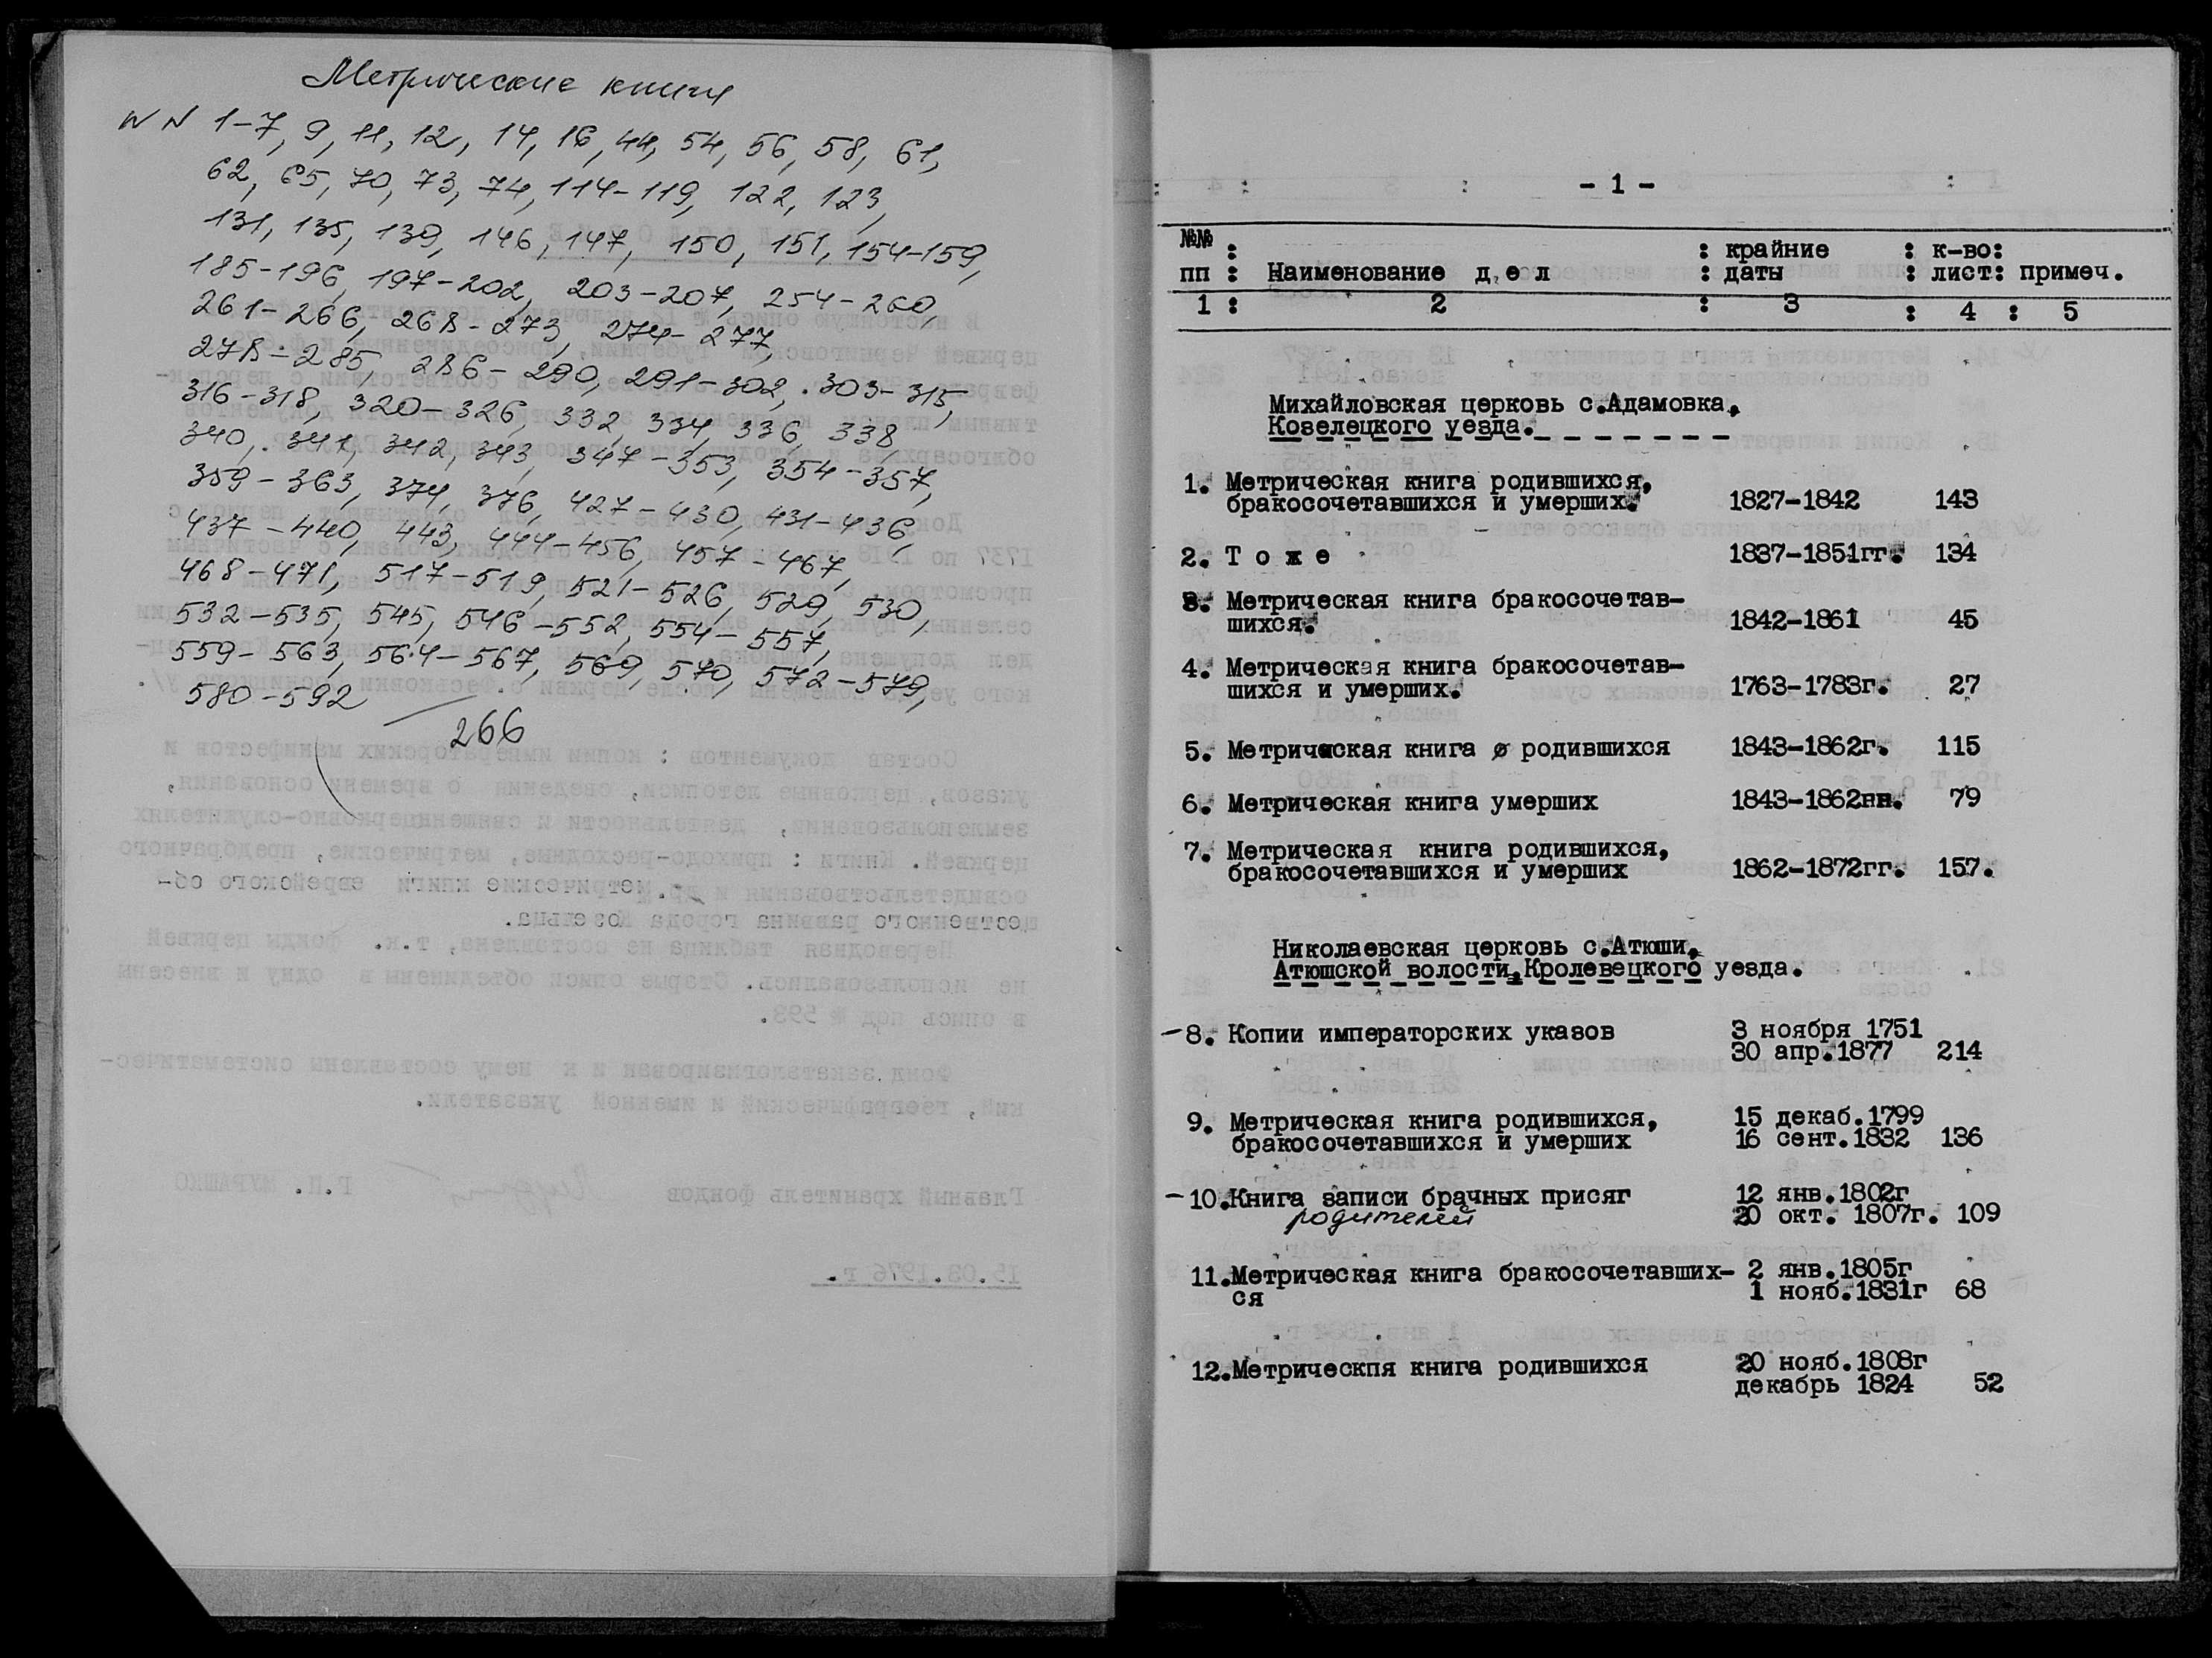 Метрические книги
NN 1-7, 9, 11, 12, 14, 16, 44, 54, 56, 58, 61,
62, 65, 70, 73, 74, 114-119, 122, 123,
131, 135, 139, 146, 147, 150, 151, 154-159,
185-196, 197-202, 203-207, 254-260,
261-266, 268-273, 274-277,
278-285, 286-290, 291-302, 303-315,
316-318, 320-326, 332, 334, 336, 338,
340, 341, 342, 343, 347-353, 354-357,
359-363, 374, 376, 427-430, 431-436,
437-440, 443, 444-456, 457-467,
468-471, 517-519, 521-526, 529, 530,
532-535, 545, 546-552, 554-557,
559-563, 564-567, 569, 570, 572-579,
580-592
266
- 1 -
№№ : : крайние : к-во:
пп : Наименование д е л : даты : лист: примеч.
1 : 2 : 3 : 4 : 5
Михайловская церковь с.Адамовка,
Козелецкого уезда.
1. Метрическая книга родившихся,
бракосочетавшихся и умерших. 1827-1842 143
2. Т о ж е 1837-1851гг. 134
3. Метрическая книга бракосочетав-
шихся. 1842-1861 45
4. Метрическая книга бракосочетав-
шихся и умерших. 1763-1783г. 27
5. Метрическая книга о родившихся 1843-1862г. 115
6. Метрическая книга умерших 1843-1862нн. 79
7. Метрическая книга родившихся,
бракосочетавшихся и умерших 1862-1872гг. 157.
Николаевская церковь с.Атюши,
Атюшской волости,Кролевецкого уезда.
-8. Копии императорских указов 3 ноября 1751
30 апр.1877 214
9. Метрическая книга родившихся, 15 декаб.1799
бракосочетавшихся и умерших 16 сент.1832 136
-10.Книга записи брачных присяг 12 янв.1802г
родителей 20 окт. 1807г. 109
11.Метрическая книга бракосочетавших- 2 янв.1805г
ся 1 нояб.1831г 68
12.Метрическпя книга родившихся 20 нояб.1808г
декабрь 1824 52